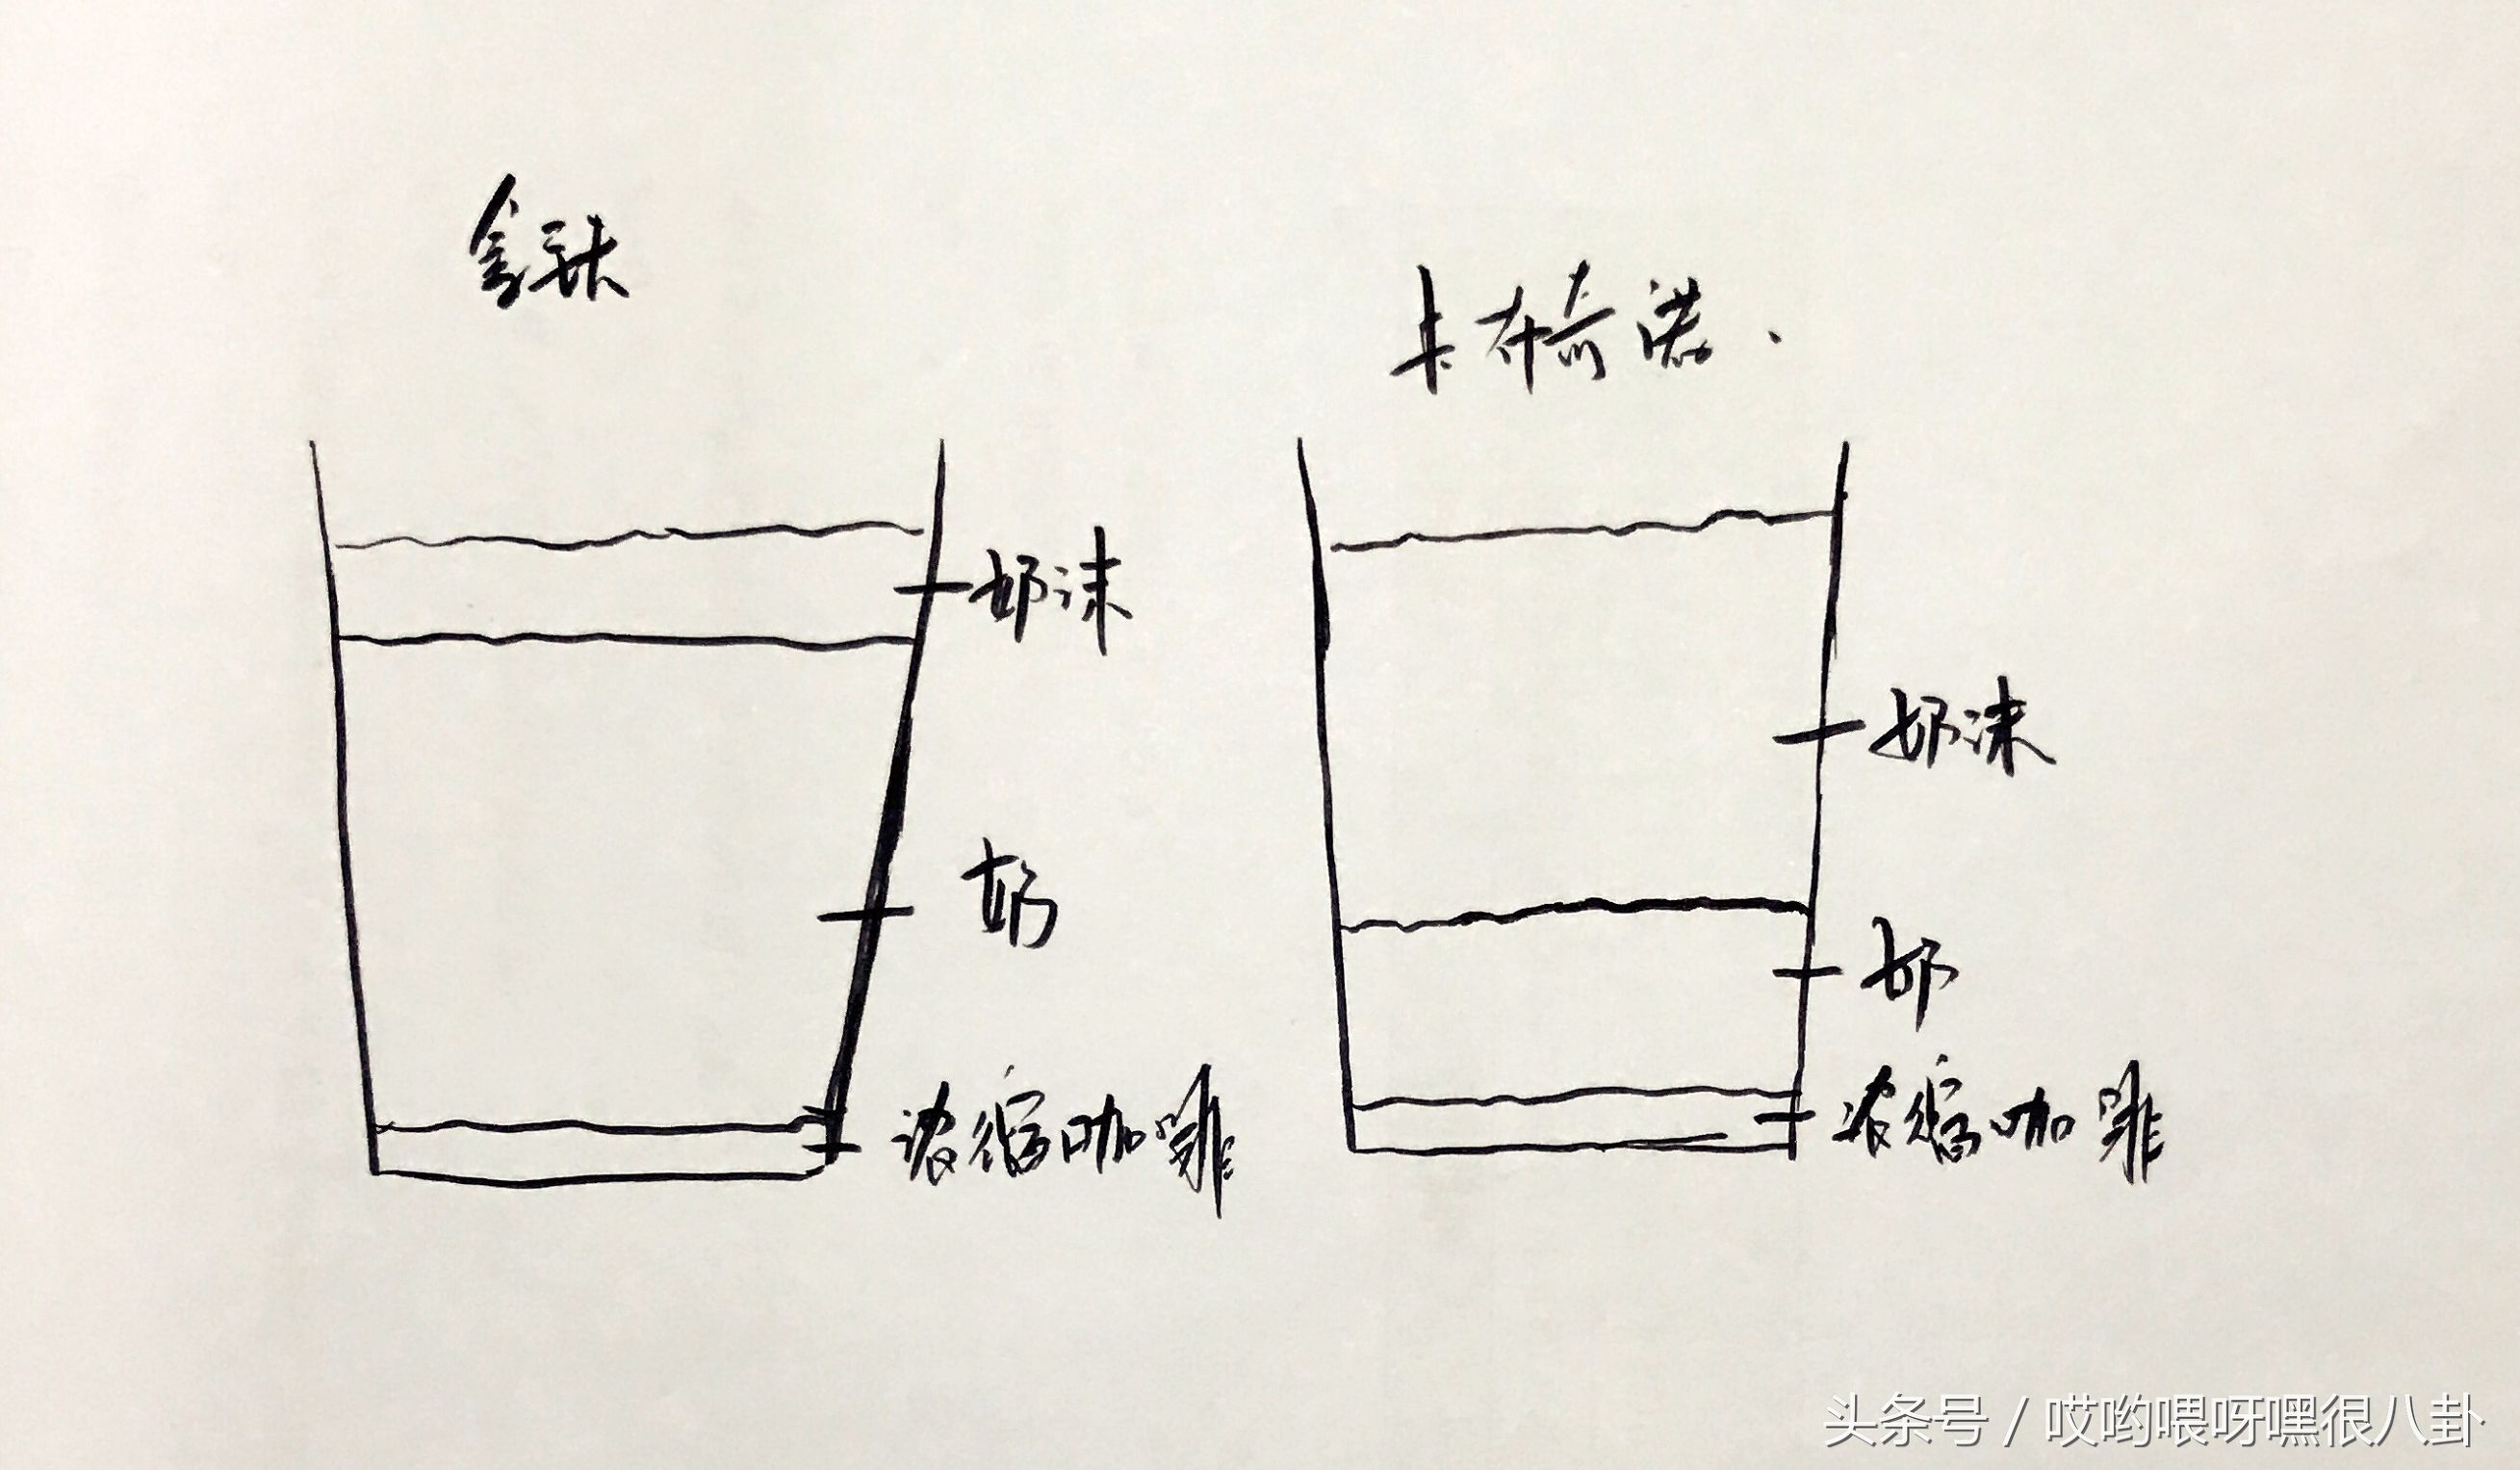 拿铁
卡布奇诺.
奶沫
奶
浓缩咖啡
奶沫
奶
浓缩咖啡
头条号 / 哎哟喂呀嘿很八卦